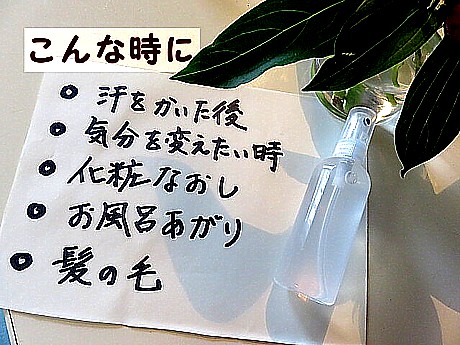 こんな時に
汗をかいた後
気分を変えたい時
化粧なおし
お風呂あがり
髪の毛